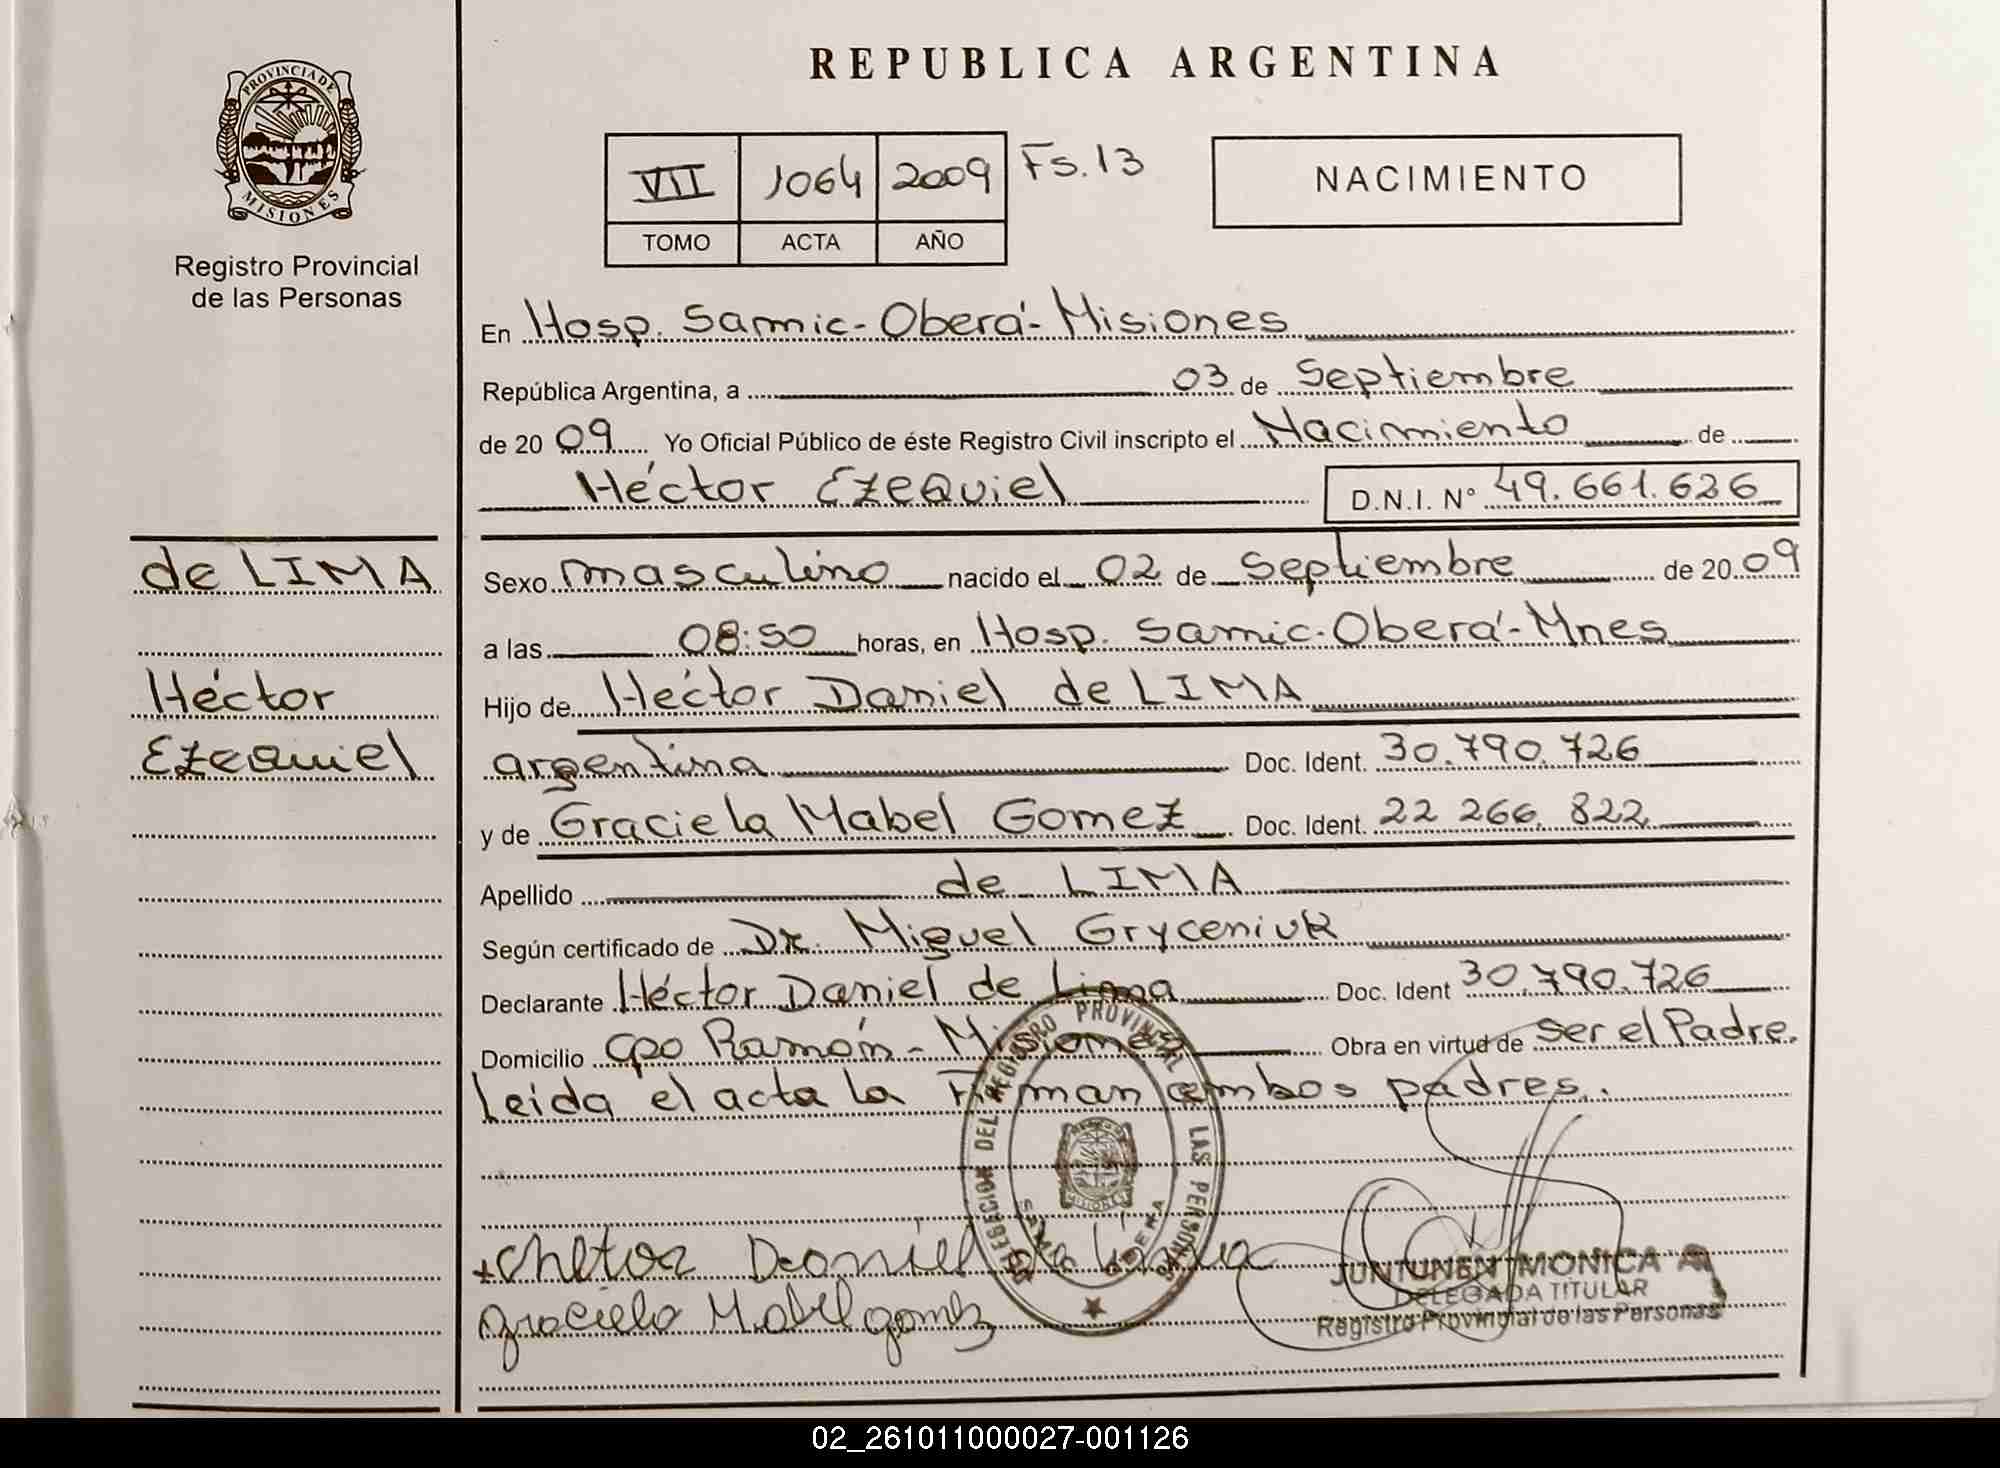 PROVINCIA DE
MISIONES
Registro Provincial
de las Personas
REPUBLICA ARGENTINA
VII 1064 2009 Fs. 13
TOMO ACTA AÑO
NACIMIENTO
En Hosp. Samic - Oberá - Misiones
República Argentina, a 03 de Septiembre
de 20 09 Yo Oficial Público de éste Registro Civil inscripto el Nacimiento de
Héctor Ezequiel D.N.I. N° 49.661.626
de LIMA
Héctor
Ezequiel
Sexo masculino nacido el 02 de Septiembre de 20 09
a las 08:50 horas, en Hosp. Samic - Oberá - Mnes
Hijo de Héctor Daniel de LIMA
argentina Doc. Ident. 30.790.726
y de Graciela Mabel Gomez Doc. Ident. 22 266. 822
Apellido de LIMA
Según certificado de Dr. Miguel Gryceniuk
Declarante Héctor Daniel de Lima Doc. Ident 30.790.726
Domicilio Cpo Ramón - Misiones Obra en virtud de ser el Padre.
Leida el acta la Firman ambos padres.
DELEGACION DEL REGISTRO PROVINCIAL LAS PERSONAS
SAMIC OBERA
Daniel de Lima
Graciela Mabel gomez
JUNTUNEN MONICA A
DELEGADA TITULAR
Registro Provincial de las Personas
02_261011000027-001126